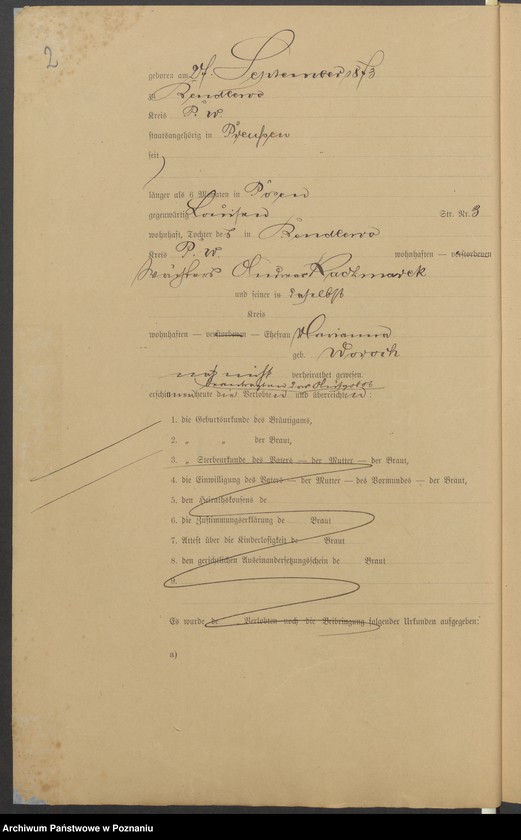 2
geboren am 27. September 1873
zu Bendlewo
Kreis P. W.
staatsangehörig in Preußen
seit
länger als 6 Monaten in Posen
gegenwärtig Louisen Str. Nr. 3
wohnhaft, Tochter des in Bendlewo
Kreis P. W. wohnhaften — verstorbenen
Wächters Andreas Kaczmarek
und seiner in daselbst
Kreis
wohnhaften — verstorbenen — Ehefrau Marianna
geb.
noch nicht verheirathet gewesen.
erschienen heute die Verlobten und überreichten:
1. die Geburtsurkunde des Bräutigams,
2. „ „ der Braut,
3. „ Sterbeurkunde des Vaters — der Mutter — der Braut,
4. die Einwilligung des Vaters — der Mutter — des Vormundes — der Braut,
5. den Heirathskonsens de
6. die Zustimmungserklärung de Braut
7. Attest über die Kinderlosigkeit de Braut
8. den gerichtlichen Auseinandersetzungsschein de Braut
9.
Es wurde de Verlobten noch die Beibringung folgender Urkunden aufgegeben:
a)
Archiwum Państwowe w Poznaniu